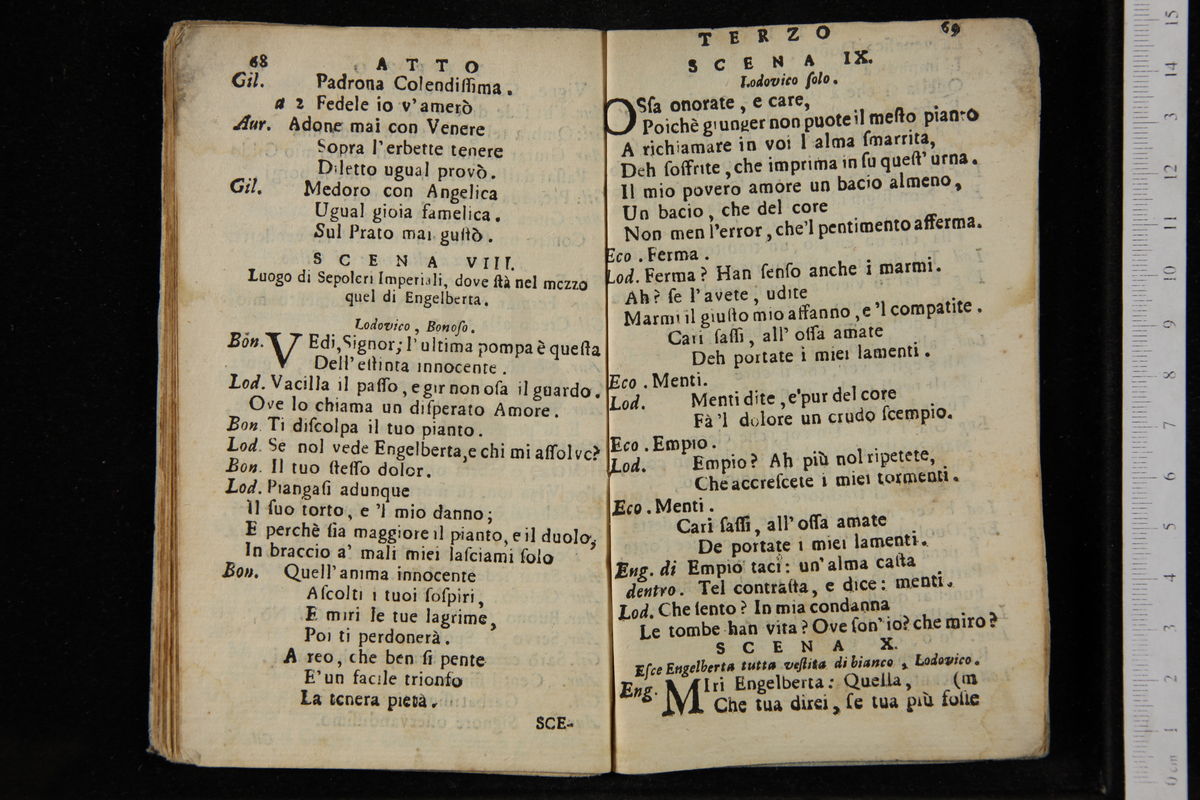 68
ATTO
Gil. Padrona Colendiſſima.
a 2 Fedele io v'amerò
Aur. Adone mai con Venere
Sopra l'erbette tenere
Diletto ugual provò.
Gil. Medoro con Angelica
Ugual gioia famelica.
Sul Prato mai guſtò.
SCENA VIII.
Luogo di Sepolcri Imperiali, dove ſtà nel mezzo
quel di Engelberta.
Lodovico, Bonoſo.
Bon. VEdi, Signor; l'ultima pompa è queſta
Dell'eſtinta innocente.
Lod. Vacilla il paſſo, e gir non oſa il guardo.
Ove lo chiama un diſperato Amore.
Bon. Ti diſcolpa il tuo pianto.
Lod. Se nol vede Engelberta, e chi mi aſſolve?
Bon. Il tuo ſteſſo dolor.
Lod. Piangaſi adunque
Il ſuo torto, e 'l mio danno;
E perchè ſia maggiore il pianto, e il duolo,
In braccio a' mali miei laſciami ſolo;
Bon. Quell'anima innocente
Aſcolti i tuoi ſoſpiri,
E miri le tue lagrime,
Poi ti perdonerà.
A reo, che ben ſi pente
E'un facile trionfo
La tenera pietà.
SCE-
TERZO
69
SCENA IX.
Lodovico ſolo.
OSſa onorate, e care,
Poichè giunger non puote il meſto pianto
A richiamare in voi l alma ſmarrita,
Deh ſoffrite, che imprima in ſu queſt' urna.
Il mio povero amore un bacio almeno,
Un bacio, che del core
Non men l'error, che'l pentimento afferma.
Eco. Ferma.
Lod. Ferma? Han ſenſo anche i marmi.
Ah? ſe l'avete, udite
Marmi il giuſto mio affanno, e 'l compatite.
Cari ſaſſi, all' oſſa amate
Deh portate i miei lamenti.
Eco. Menti.
Lod. Menti dite, e'pur del core
Fà 'l dolore un crudo ſcempio.
Eco. Empio.
Lod. Empio? Ah più nol ripetete,
Che accreſcete i miei tormenti.
Eco. Menti.
Cari ſaſſi, all' oſſa amate
De portate i miei lamenti.
Eng. di Empio taci: un'alma caſta
dentro. Tel contraſta, e dice: menti.
Lod. Che ſento? In mia condanna
Le tombe han vita? Ove ſon' io? che miro?
SCENA X.
Eſce Engelberta tutta veſtita di bianco, Lodovico.
Eng. MIri Engelberta: Quella, (m
Che tua direi, ſe tua più foſſe